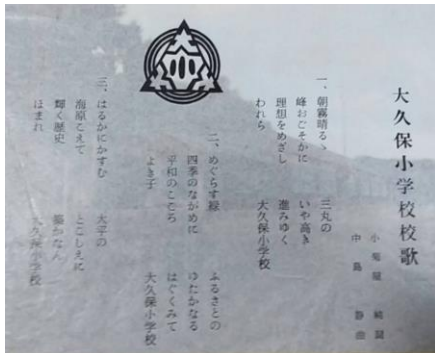 大久保小学校校歌
中島 静曲
一、朝霧晴るゝ 三丸の
峰おごそかに いや高き
理想をめざし 進みゆく
われら 大久保小学校
二、めぐらす緑 ふるさとの
四季のながめに ゆたかなる
平和のこころ はぐくみて
よき子 大久保小学校
三、はるかにかすむ 太平の
海原こえて とこしえに
輝く歴史 築かなん
ほまれ 大久保小学校